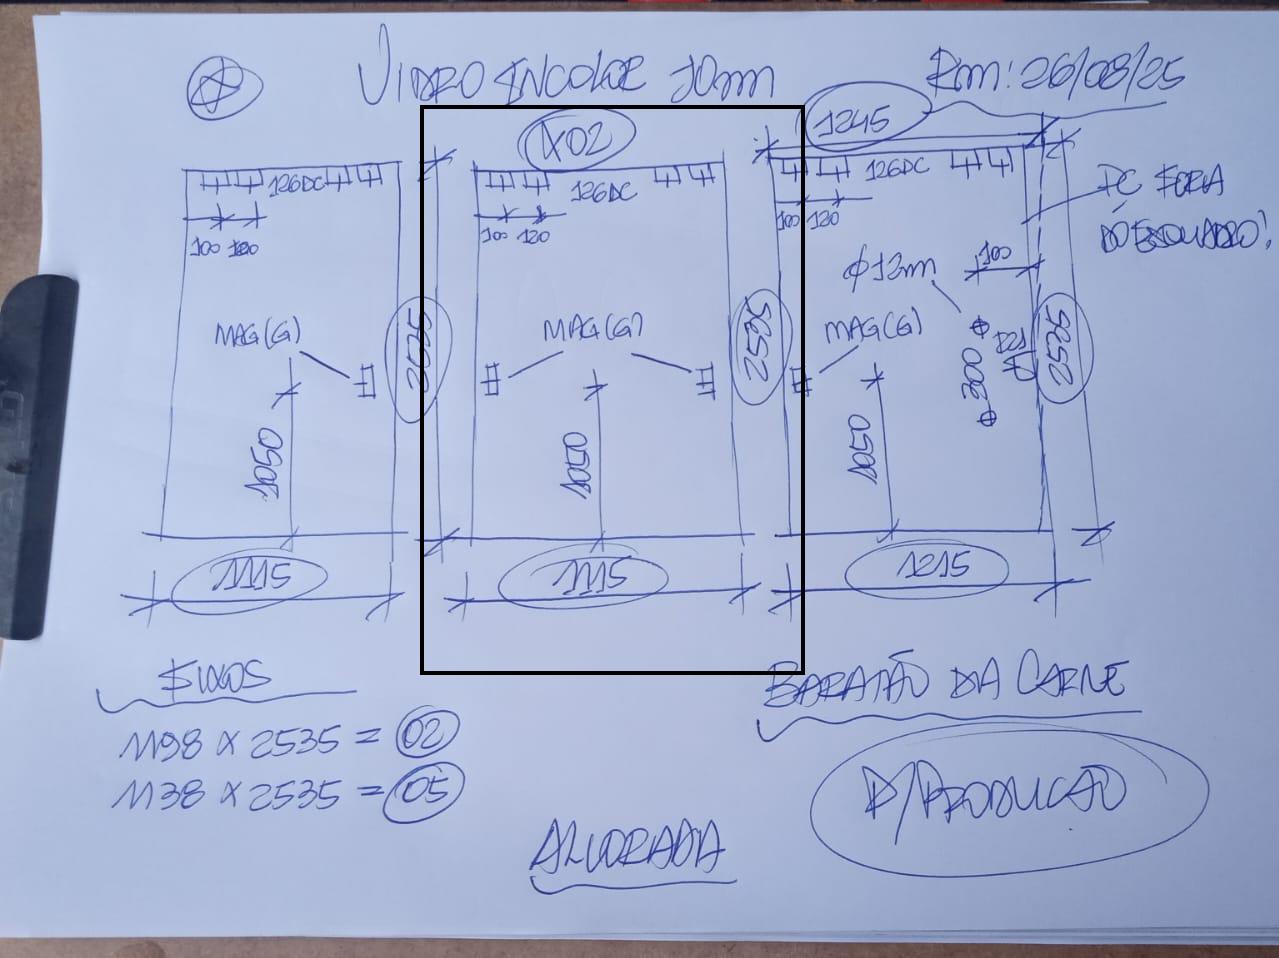 VIDRO INCOLOR 10mm
Rm: 26/08/25
X02
1245
126DC
126DC
126DC
PC FORA
DO ESQUADRO!
100 120
100 120
100 120
100
Φ12m
MAG(G)
MAG(G)
MAG(G)
2535
2535
2535
300
1050
1050
1050
1115
1115
1215
FIXOS
BARATÃO DA CARNE
1198 X 2535 = 02
1138 X 2535 = 05
P/PRODUCÃO
ALVORADA